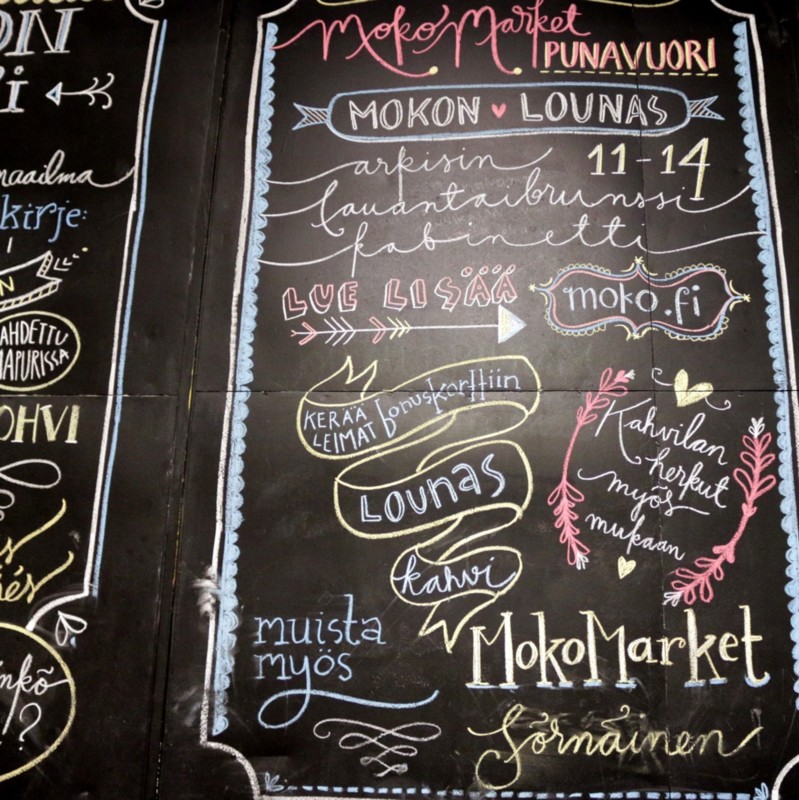 ON
i
maailma
kirje:
N
AHDETTU
APURISSA
OHVI
s
és
inkö
?
MokoMarket
PUNAVUORI
MOKON ♥ LOUNAS
arkisin 11-14
lauantaibrunssi
kabinetti
LUE LISÄÄ moko.fi
KERÄÄ
LEIMAT bonuskorttiin
LOUNAS
kahvi
Kahvilan
herkut
myös
mukaan
muista
myös
MokoMarket
Sörnäinen